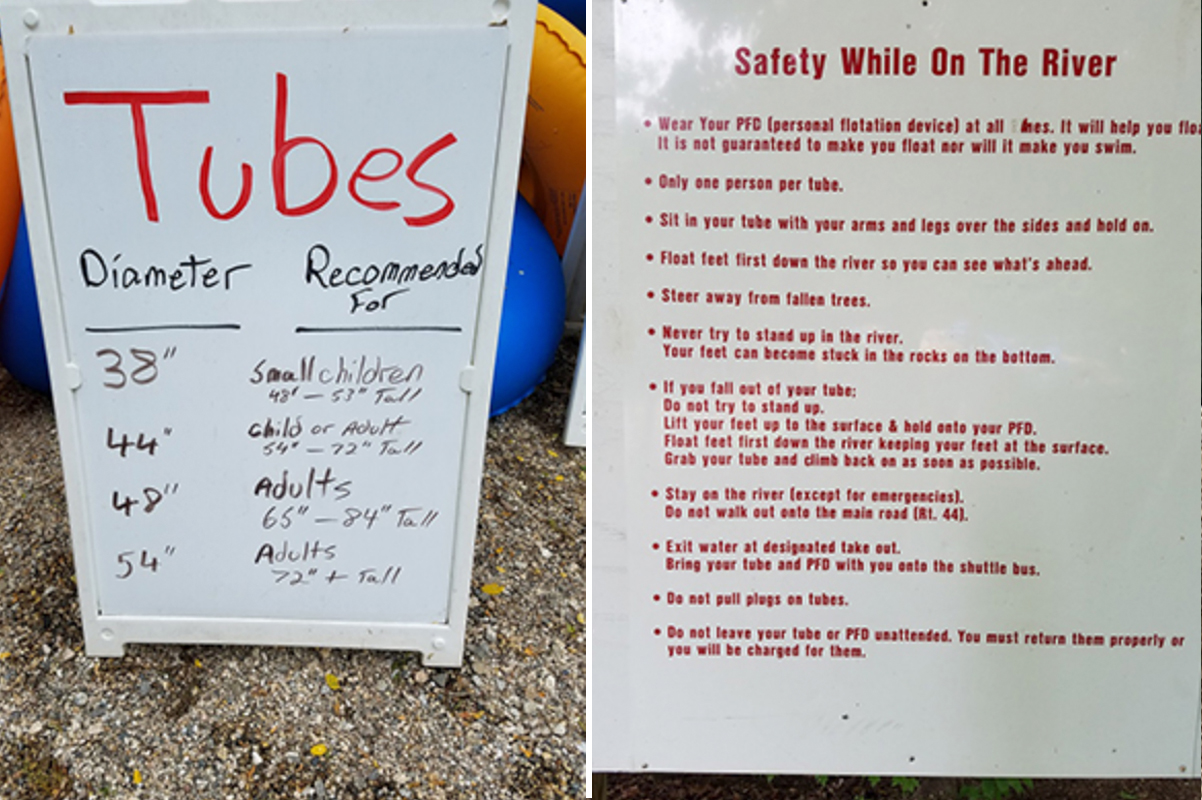 Tubes
Diameter Recommended
For
38" Small children
48" - 53" Tall
44" Child or Adult
54" - 72" Tall
48" Adults
65" - 84" Tall
54" Adults
72" + Tall
Safety While On The River
• Wear Your PFD (personal flotation device) at all mes. It will help you floa
It is not guaranteed to make you float nor will it make you swim.
• Only one person per tube.
• Sit in your tube with your arms and legs over the sides and hold on.
• Float feet first down the river so you can see what's ahead.
• Steer away from fallen trees.
• Never try to stand up in the river.
Your feet can become stuck in the rocks on the bottom.
• If you fall out of your tube;
Do not try to stand up.
Lift your feet up to the surface & hold onto your PFD.
Float feet first down the river keeping your feet at the surface.
Grab your tube and climb back on as soon as possible.
• Stay on the river (except for emergencies).
Do not walk out onto the main road (Rt. 44).
• Exit water at designated take out.
Bring your tube and PFD with you onto the shuttle bus.
• Do not pull plugs on tubes.
• Do not leave your tube or PFD unattended. You must return them properly or
you will be charged for them.